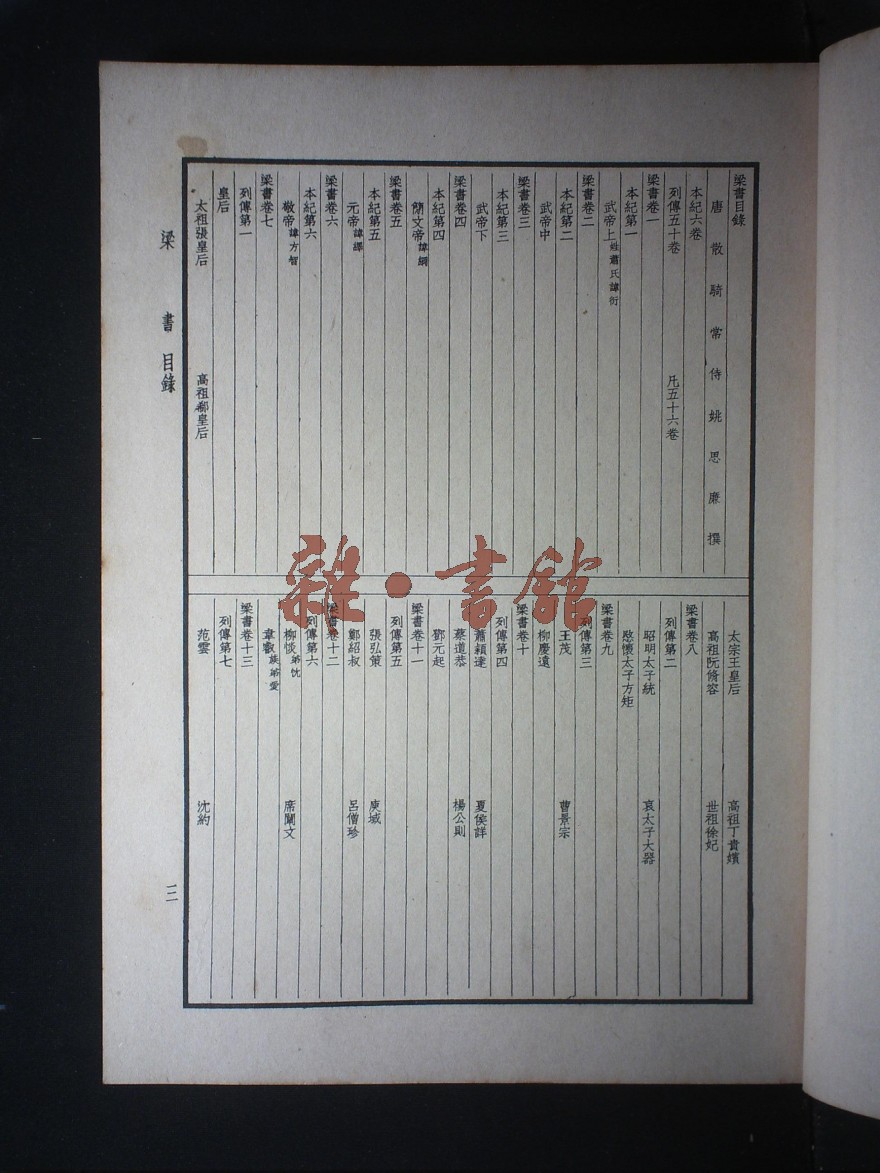 梁書目錄
唐散騎常侍姚思廉撰
本紀六卷
列傳五十卷 凡五十六卷
梁書卷一
本紀第一
武帝上 姓蕭氏諱衍
梁書卷二
本紀第二
武帝中
梁書卷三
本紀第三
武帝下
梁書卷四
本紀第四
簡文帝 諱綱
梁書卷五
本紀第五
元帝 諱繹
梁書卷六
本紀第六
敬帝 諱方智
梁書卷七
列傳第一
皇后
太祖張皇后 高祖郗皇后
太宗王皇后 高祖丁貴嬪
高祖阮脩容 世祖徐妃
梁書卷八
列傳第二
昭明太子統 哀太子大器
愍懷太子方矩
梁書卷九
列傳第三
王茂 曹景宗
柳慶遠
梁書卷十
列傳第四
蕭穎達 夏侯詳
蔡道恭 楊公則
鄧元起
梁書卷十一
列傳第五
張弘策 庾域
鄭紹叔 呂僧珍
梁書卷十二
列傳第六
柳惔 弟忱 席闡文
韋叡 族弟愛
梁書卷十三
列傳第七
范雲 沈約
梁書 目錄
三
雜·書館